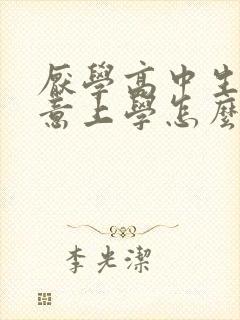 厭學高中生
意上學怎麼
李光潔